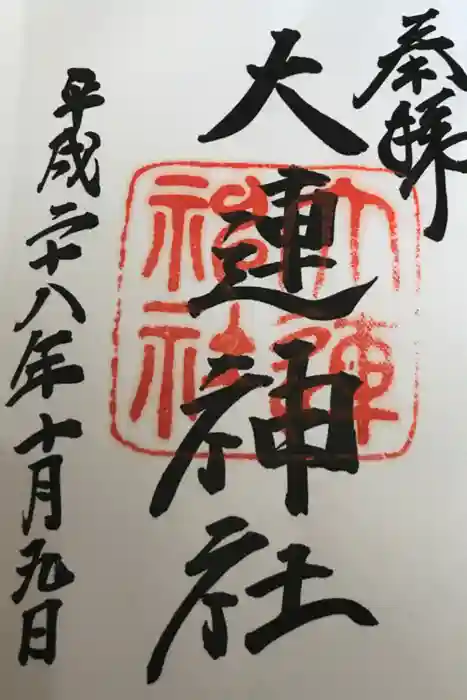 奉拝
大連神社
大連神社
平成二十八年十月九日